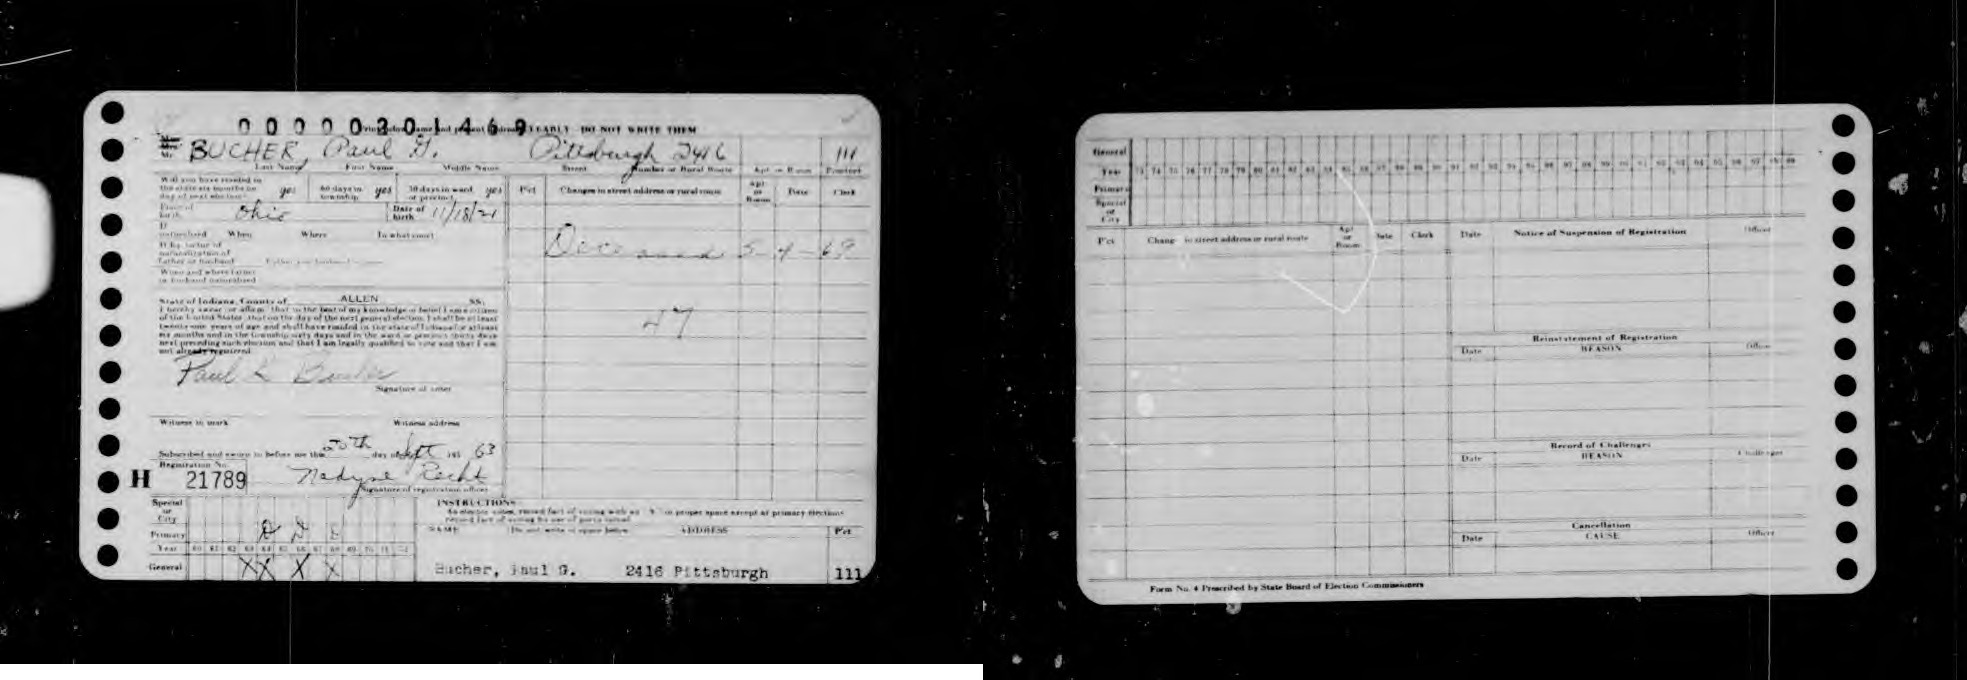 0000301469
Print Index Name and present address CLEARLY DO NOT WRITE THEM
Mr. BUCHER, Paul G. Pittsburgh 2416 111
Last Name First Name Middle Name Street Number or Rural Route Apt or Room Precinct
Will you have resided in
the state six months on yes 60 days in yes 30 days in ward yes
day of next election township or precinct
Pct Changes in street address or rural route Apt or Room Date Clerk
Place of birth Ohio Date of birth 11/18/21
If naturalized When Where In what court
If by virtue of
naturalization of
father or husband
When and where father
or husband naturalized
Deceased 5-4-69
47
State of Indiana, County of ALLEN SS.
I hereby swear or affirm that to the best of my knowledge or belief I am a citizen
of the United States that on the day of the next general election I shall be at least
twenty-one years of age and shall have resided in the state of Indiana for at least
six months and in the township sixty days and in the ward or precinct thirty days
next preceding such election and that I am legally qualified to vote and that I am
not already registered.
Signature of voter
Witness to mark Witness address
Subscribed and sworn to before me this 20th day of Sept 195 63
Registration No.
H 21789 Nadyne Recht
Signature of registration officer
INSTRUCTIONS
NAME Do not write in space below ADDRESS Pct
Special or City
Primary D D
Year 60 61 62 63 64 65 66 67 68 69 70 71 72
General X X X X
Bucher, Paul G. 2416 Pittsburgh 111
General
Year 73 74 75 76 77 78 79 80 81 82 83 84 85 86 87 88 89 90 91 92 93 94 95 96 97 98 99
Primary
Special or City
Pct Change in street address or rural route Apt or Room Date Clerk
Date Notice of Suspension of Registration Officer
Reinstatement of Registration
Date REASON Officer
Record of Challenges
Date REASON Challenger
Cancellation
Date CAUSE Officer
Form No. 4 Prescribed by State Board of Election Commissioners